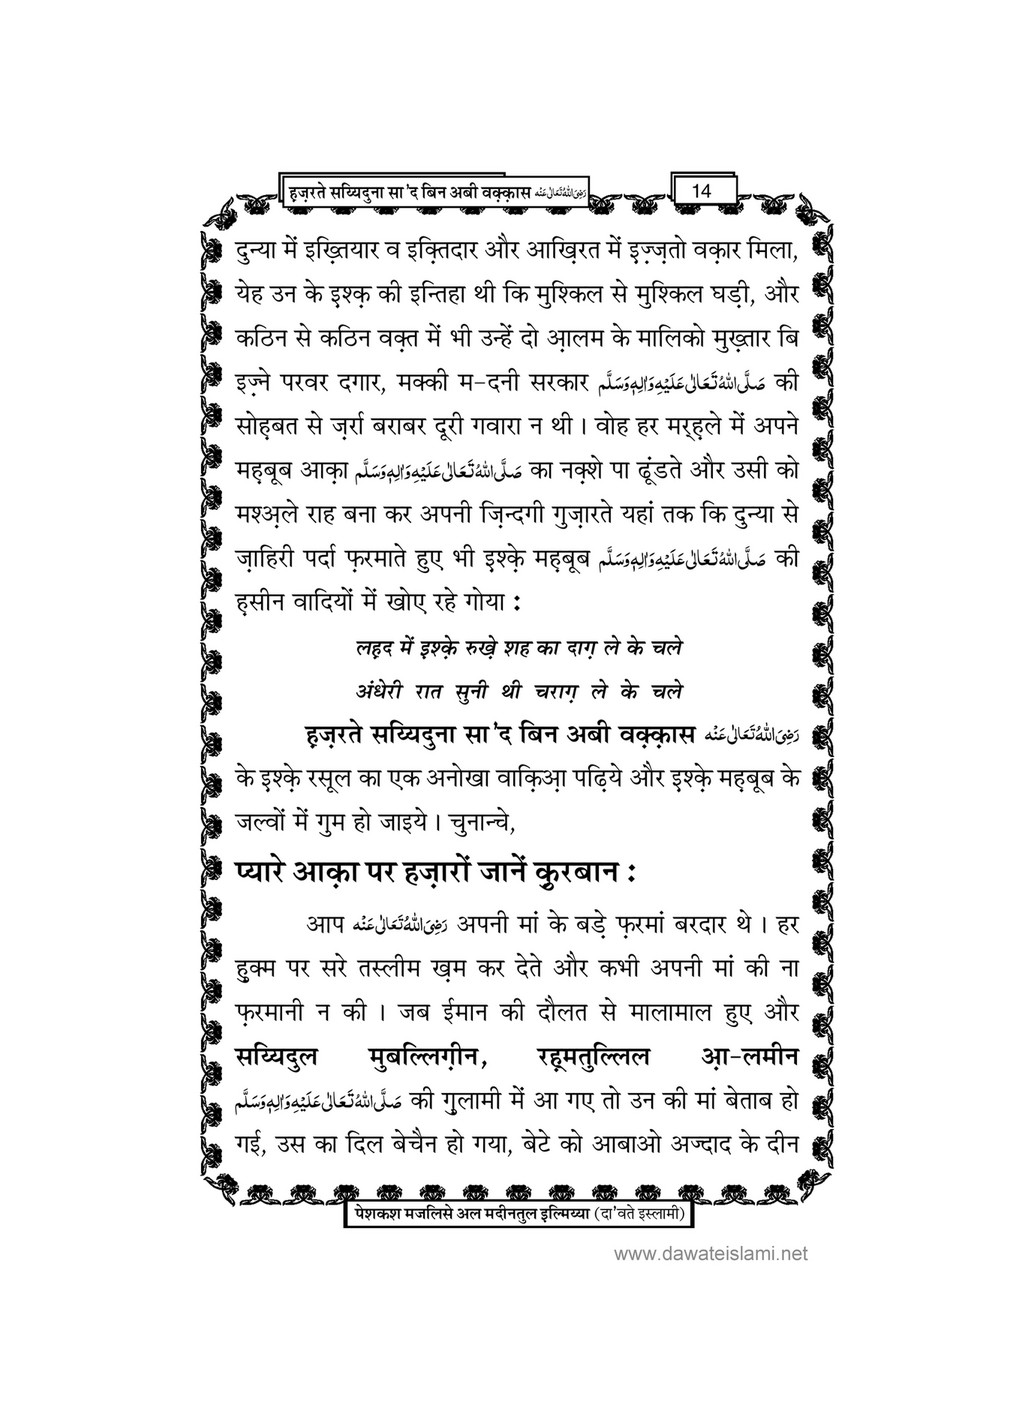 ह़ज़रते सय्यिदुना सा'द बिन अबी वक़्क़ास رَضِىَ اللهُ تَعَالٰى عَنْه
14
दुन्या में इख़्तियार व इक़्तिदार और आख़िरत में इ़ज़्ज़तो वक़ार मिला,
येह उन के इ़श्क़ की इन्तिहा थी कि मुश्किल से मुश्किल घड़ी, और
कठिन से कठिन वक़्त में भी उन्हें दो आ़लम के मालिको मुख़्तार बि
इज़्ने परवर दगार, मक्की म-दनी सरकार صَلَّى اللهُ تَعَالٰى عَلَيْهِ وَاٰلِهٖ وَسَلَّم की
सोह़बत से ज़र्रा बराबर दूरी गवारा न थी । वोह हर मर्ह़ले में अपने
मह़बूब आक़ा صَلَّى اللهُ تَعَالٰى عَلَيْهِ وَاٰلِهٖ وَسَلَّم का नक़्शे पा ढूंडते और उसी को
मश्अ़ले राह बना कर अपनी ज़िन्दगी गुज़ारते यहां तक कि दुन्या से
ज़ाहिरी पर्दा फ़रमाते हुए भी इ़श्क़े मह़बूब صَلَّى اللهُ تَعَالٰى عَلَيْهِ وَاٰلِهٖ وَسَلَّم की
ह़सीन वादियों में खोए रहे गोया :
लह़द में इ़श्क़े रुख़े शह का दाग़ ले के चले
अंधेरी रात सुनी थी चराग़ ले के चले
ह़ज़रते सय्यिदुना सा'द बिन अबी वक़्क़ास رَضِىَ اللهُ تَعَالٰى عَنْه
के इ़श्क़े रसूल का एक अनोखा वाक़िआ़ पढ़िये और इ़श्क़े मह़बूब के
जल्वों में गुम हो जाइये । चुनान्चे,
प्यारे आक़ा पर हज़ारों जानें क़ुरबान :
आप رَضِىَ اللهُ تَعَالٰى عَنْه अपनी मां के बड़े फ़रमां बरदार थे । हर
हु़क्म पर सरे तस्लीम ख़म कर देते और कभी अपनी मां की ना
फ़रमानी न की । जब ईमान की दौलत से मालामाल हुए और
सय्यिदुल मुबल्लिग़ीन, रह़मतुल्लिल आ़-लमीन
صَلَّى اللهُ تَعَالٰى عَلَيْهِ وَاٰلِهٖ وَسَلَّم की ग़ुलामी में आ गए तो उन की मां बेताब हो
गई, उस का दिल बेचैन हो गया, बेटे को आबाओ अज्दाद के दीन
पेशकश मजलिसे अल मदीनतुल इल्मिय्या (दा'वते इस्लामी)
www.dawateislami.net